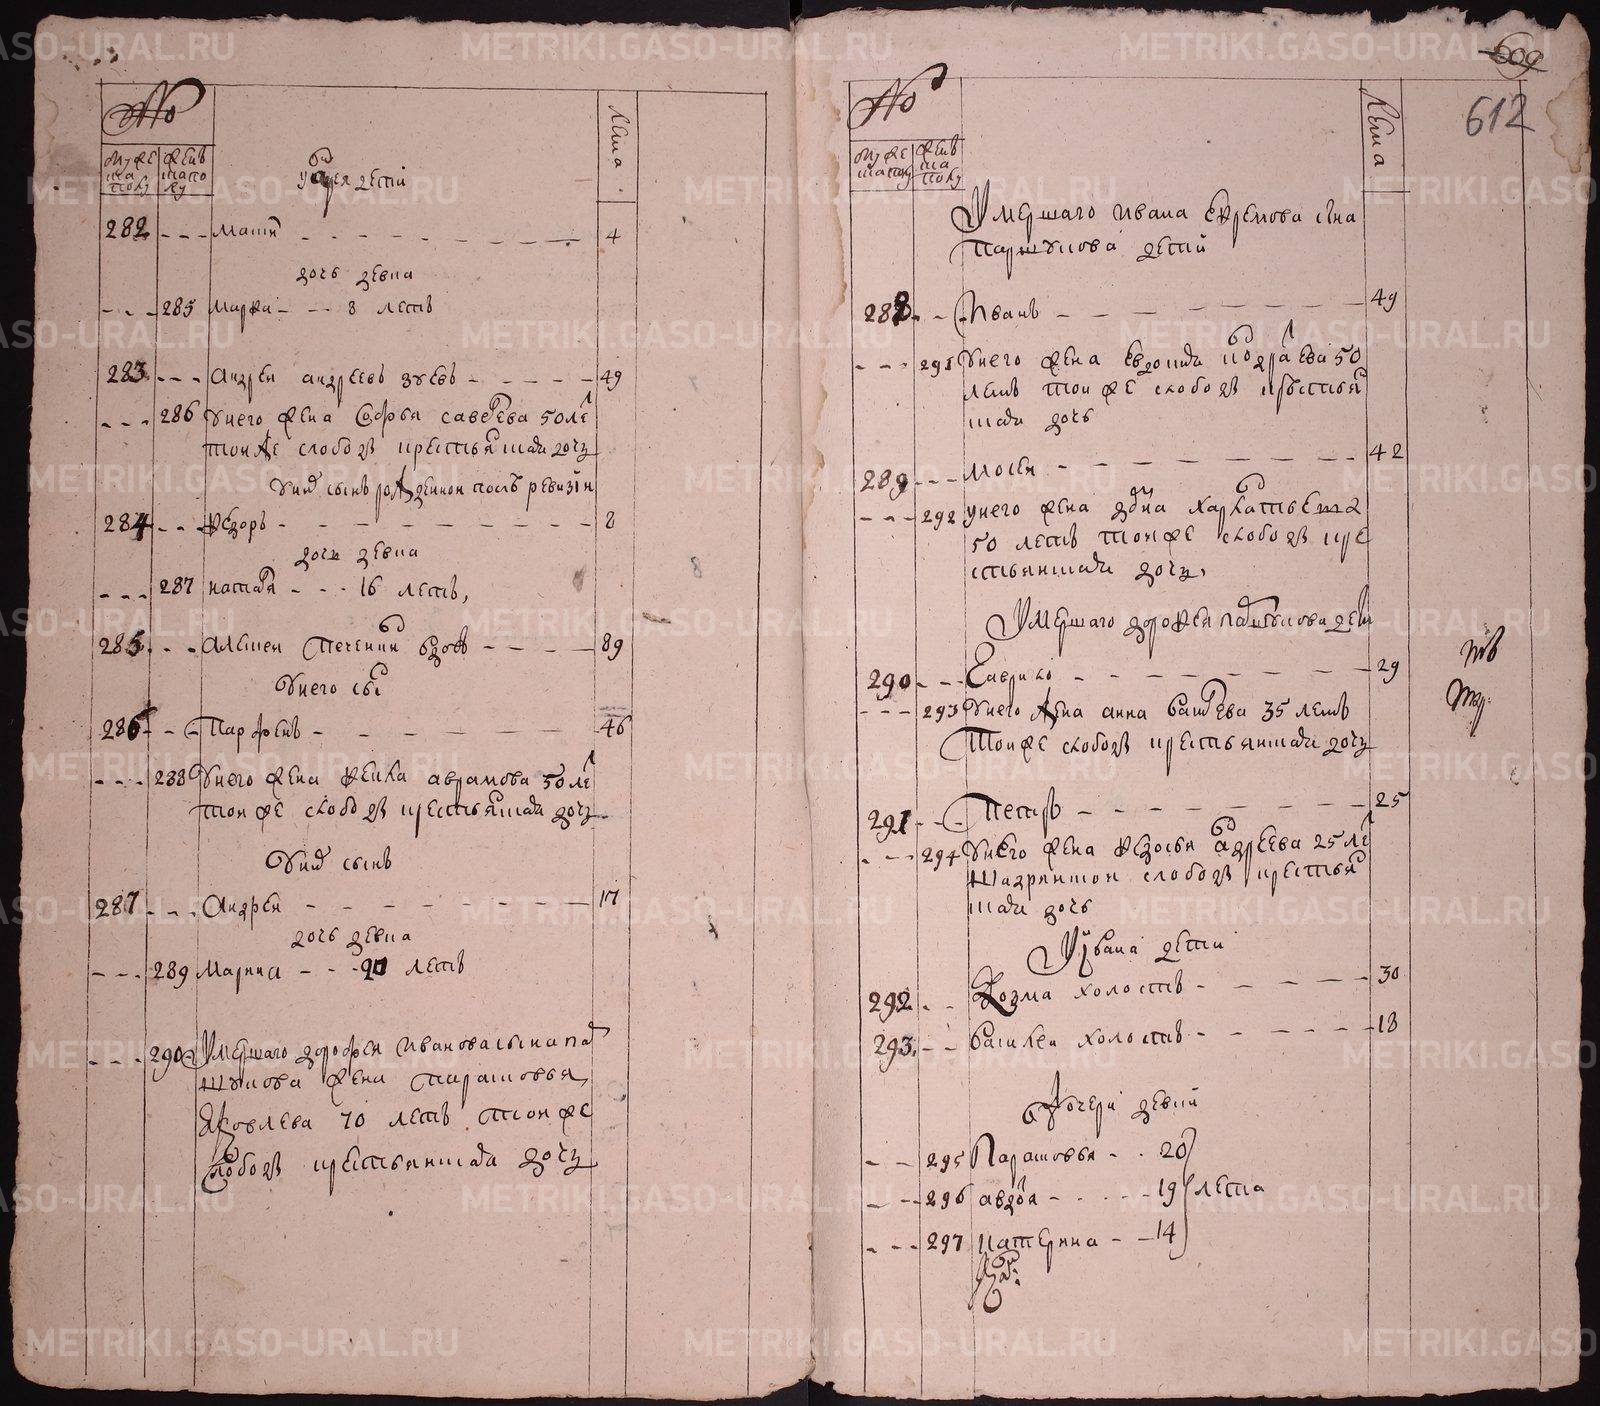 №
мужеска полу
женска полу
лета
у Андрея детей
282 - - - Матвей - - - 4
дочь девка
- - - 285 Марка - - - 8 летъ
283 - - - Андреи андреевъ зуевъ - - - 49
- - - 286 Унего жена Софья савельева 50 ле
тои же слободы крестьянская дочь
Уних сынъ рожденнои после ревизiи
284 - - - Федоръ - - - 8
дочь девка
- - - 287 наталя - - - 16 летъ
285 - - - Алексеи вдовъ - - - 89
Унего сын
286 - - - Парфенъ - - - 46
- - - 288 Унего жена аврамова 50 ле
тои же слободы крестьянская дочь
Уних сынъ
287 - - - Андреи - - - 17
дочь девка
- - - 289 Марина - - - 20 летъ
- - - 290 Умершаго дорофея Иванова сына пар
шукова жена Парасковья
Яковлева 70 летъ тои же
слободы крестьянская дочь
609
612
№
мужеска полу
женска полу
лета
Умершаго Ивана Ефремова сына
Паршукова детей
288 - - Иванъ - - - 49
- - - 291 Унего жена Евдокия кодратева 50
летъ тои же слободы крестьян
ская дочь
289 - - - Мосеи - - - 42
- - - 292 унего жена
50 летъ тои же слободы кре
стьянская дочь
Умершаго дорофея паршукова дети
290 - - - Гаврило - - - 29
- - - 293 Унего жена анна 35 летъ
Тои же слободы крестьянская дочь
291 - - - Петръ - - - 25
- - - 294 Унего жена Федосья андреева 25 ле
Шадринской слободы крестьян
ская дочь
У Ивана дети
292 - - Козма холостъ - - - 30
293 - - Василеи холостъ - - - 18
Дочери девки
- - 295 Парасковья - - 20
- - 296 авдотя - - - 19 лета
- - 297 Катерина - - 14